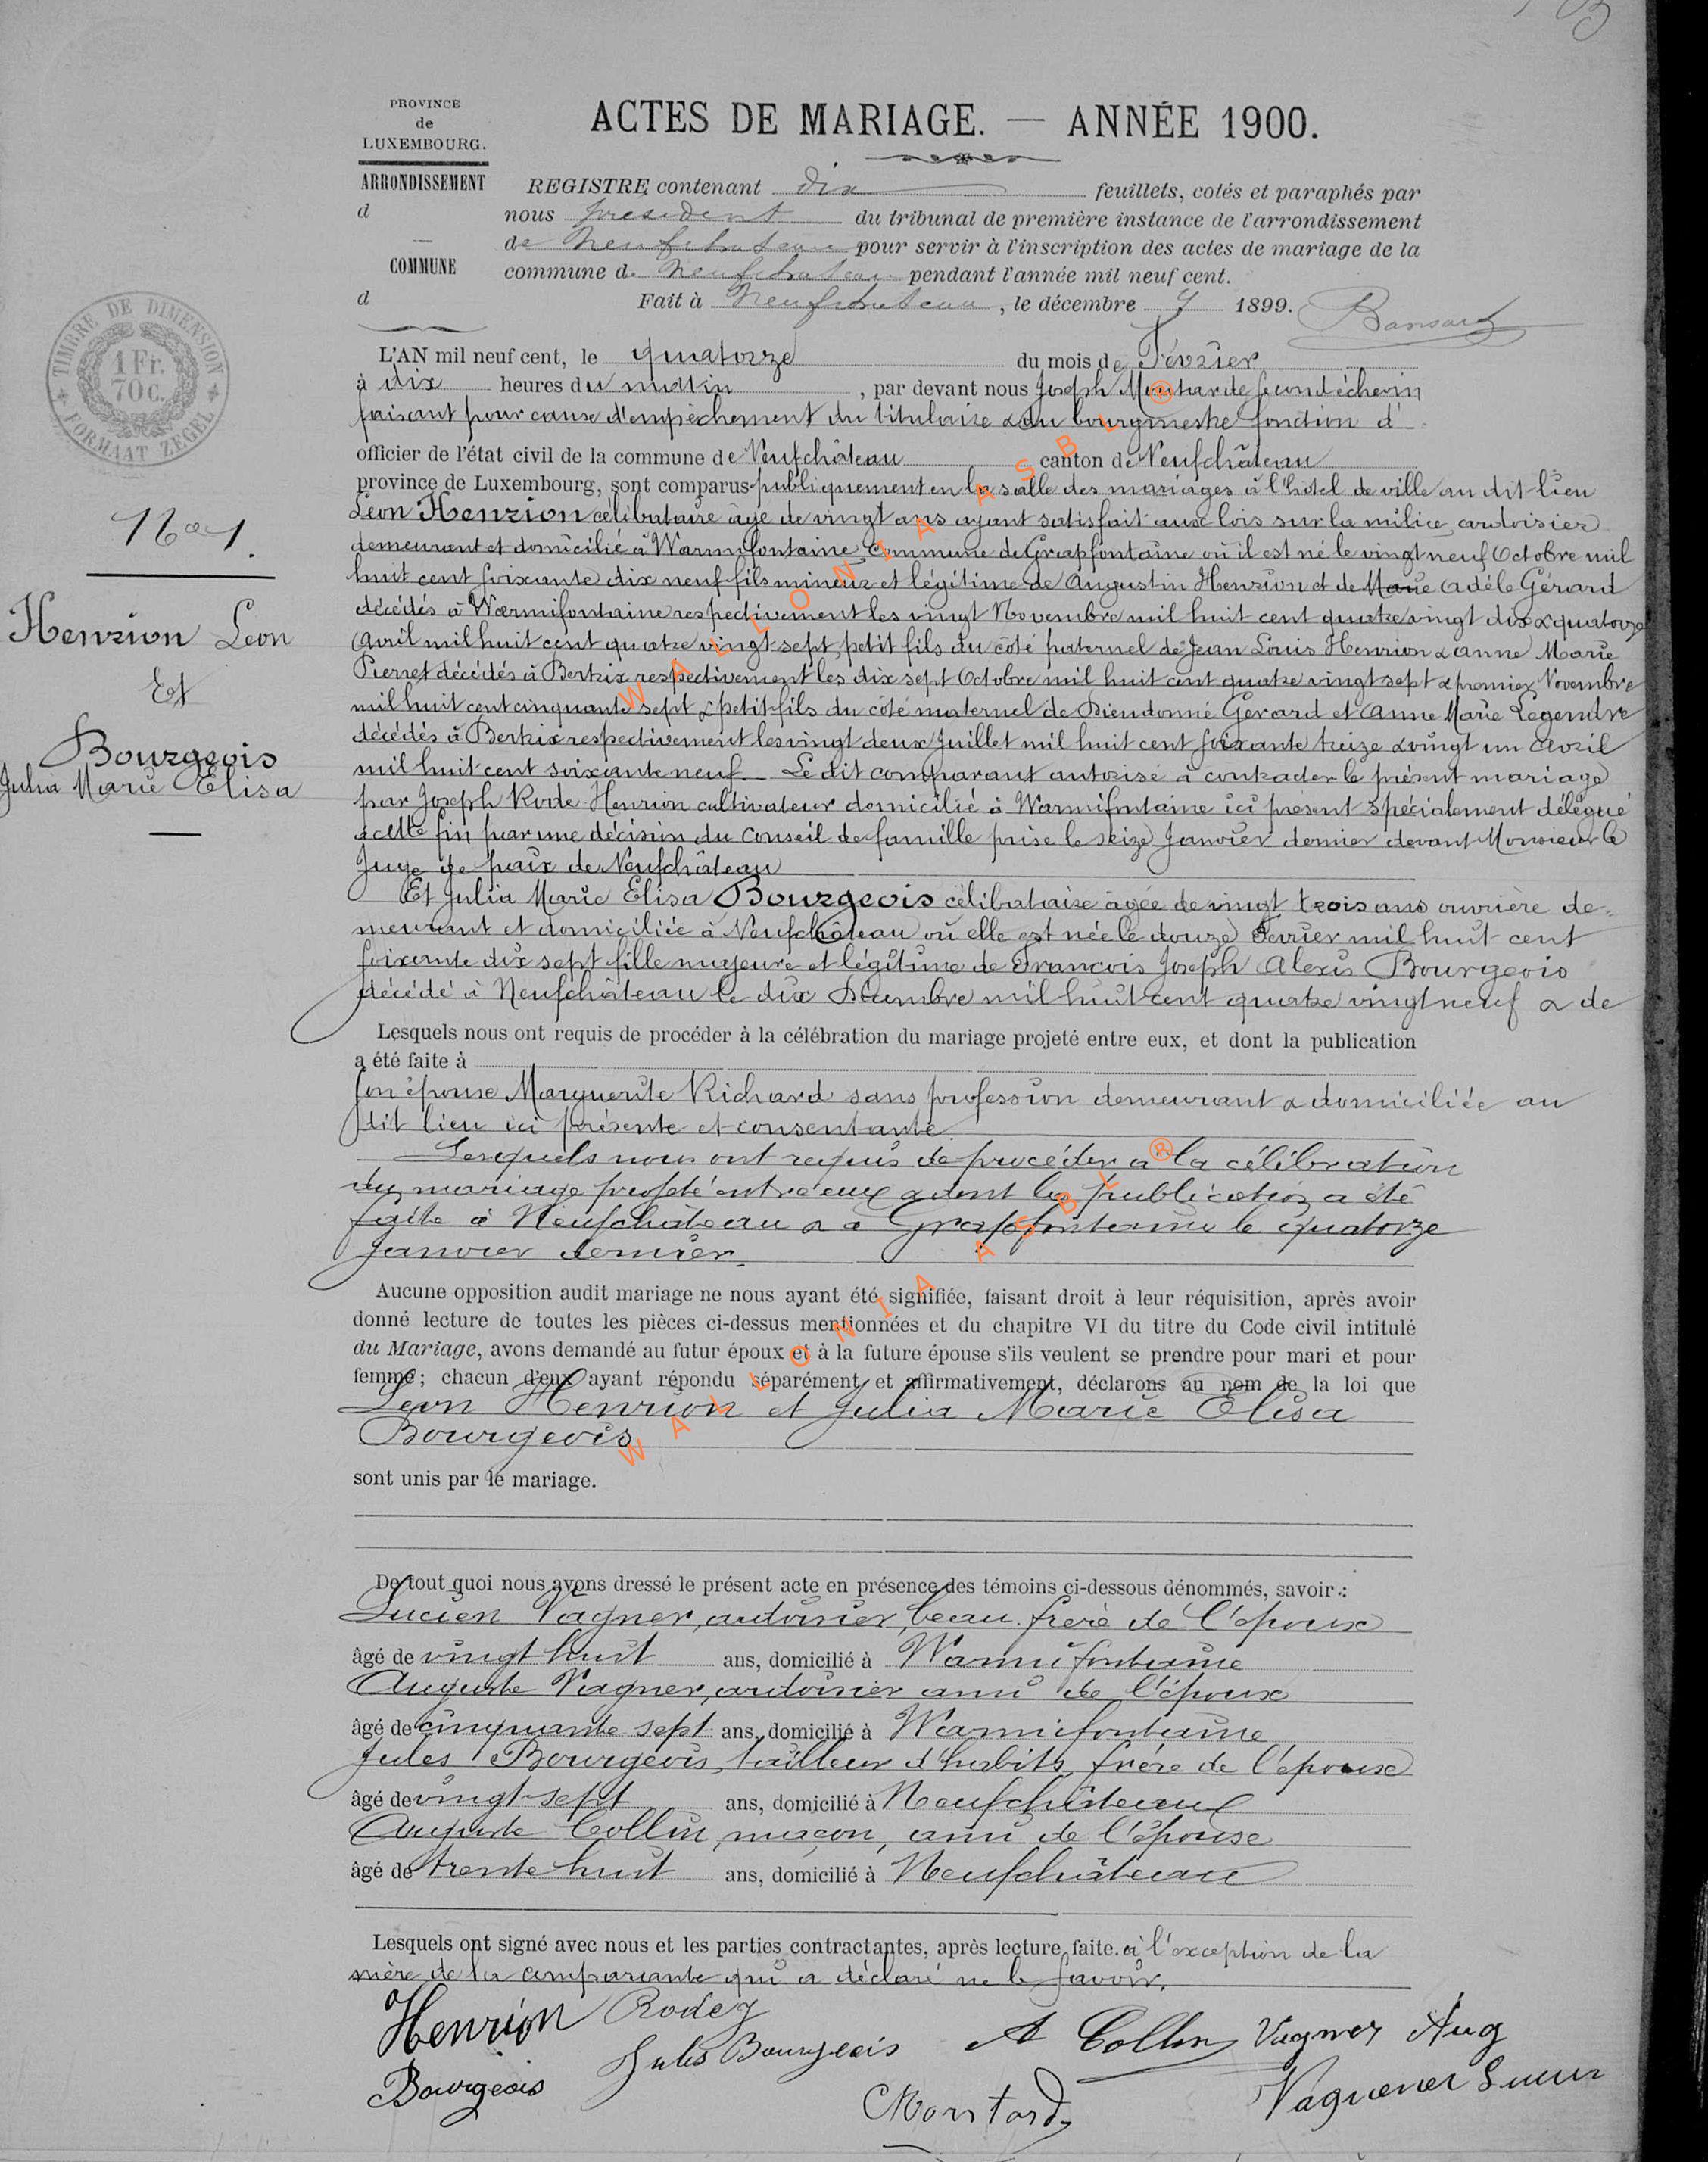 PROVINCE
de
LUXEMBOURG.
ARRONDISSEMENT
d
COMMUNE
d
ACTES DE MARIAGE. — ANNÉE 1900.
REGISTRE contenant dix feuillets, cotés et paraphés par
nous president du tribunal de première instance de l'arrondissement
de Neufchateau pour servir à l'inscription des actes de mariage de la
commune de Neufchateau pendant l'année mil neuf cent.
Fait à Neufchateau, le décembre 7 1899.
TIMBRE DE DIMENSION
1 Fr.
70 c.
FORMAAT ZEGEL
No 1.
Henrion Leon
Et
Bourgeois
Julia Marie Elisa
L'AN mil neuf cent, le quatorze du mois de Février
à dix heures du matin, par devant nous Joseph Moutarde second échevin
faisant pour cause d'empêchement du titulaire & du bourgmestre fonction d'
officier de l'état civil de la commune de Neufchâteau canton de Neufchâteau
province de Luxembourg, sont comparus publiquement en la salle des mariages à l'hôtel de ville au dit lieu
Léon Henrion célibataire âgé de vingt ans ayant satisfait aux lois sur la milice, ardoisier
demeurant et domicilié à Warmifontaine, Commune de Grapfontaine où il est né le vingt neuf Octobre mil
huit cent soixante dix neuf fils mineur et légitime de Augustin Henrion et de Marie Adèle Gérard
décédés à Warmifontaine respectivement les vingt Novembre mil huit cent quatre vingt dix & quatorze
avril mil huit cent quatre vingt sept, petit fils du côté paternel de Jean Louis Henrion & Anne Marie
Pierret décédés à Bertrix respectivement les dix sept Octobre mil huit cent quatre vingt sept & premier Novembre
mil huit cent cinquante sept & petit-fils du côté maternel de Dieudonné Gérard et Anne Marie Legendre
décédés à Bertrix respectivement les vingt deux Juillet mil huit cent soixante treize & vingt un Avril
mil huit cent soixante neuf. — Le dit comparant autorisé à contracter le présent mariage
par Joseph Rode-Henrion cultivateur domicilié à Warmifontaine ici présent spécialement délégué
à cette fin par une décision du Conseil de famille prise le seize Janvier dernier devant Monsieur le
Juge de paix de Neufchâteau
Et Julia Marie Elisa Bourgeois célibataire âgée de vingt trois ans ouvrière de-
meurant et domiciliée à Neufchateau où elle est née le douze Fevrier mil huit cent
soixante dix sept fille majeure et légitime de Francois Joseph Alexis Bourgeois
décédé à Neufchâteau le dix Décembre mil huit cent quatre vingt neuf & de
Lesquels nous ont requis de procéder à la célébration du mariage projeté entre eux, et dont la publication
a été faite à
son épouse Marguerite Richard sans profession demeurant & domiciliée au
dit lieu ici présente et consentante
Lesquels nous ont requis de procéder à la célébration
du mariage projeté entre eux & dont la publication a été
faite à Neufchâteau & à Grapfontaine le quatorze
janvier dernier.
Aucune opposition audit mariage ne nous ayant été signifiée, faisant droit à leur réquisition, après avoir
donné lecture de toutes les pièces ci-dessus mentionnées et du chapitre VI du titre du Code civil intitulé
du Mariage, avons demandé au futur époux et à la future épouse s'ils veulent se prendre pour mari et pour
femme; chacun d'eux ayant répondu séparément et affirmativement, déclarons au nom de la loi que
Leon Henrion et Julia Marie Elisa
Bourgeois
sont unis par le mariage.
De tout quoi nous avons dressé le présent acte en présence des témoins ci-dessous dénommés, savoir :
Lucien Vagner, ardoisier, beau-frère de l'époux
âgé de vingt huit ans, domicilié à Warmifontaine
Auguste Vagner, ardoisier ami de l'époux
âgé de cinquante sept ans, domicilié à Warmifontaine
Jules Bourgeois, tailleur d'habits, frère de l'épouse
âgé de vingt-sept ans, domicilié à Neufchâteau
Auguste Collin, maçon, ami de l'épouse
âgé de trente huit ans, domicilié à Neufchâteau
Lesquels ont signé avec nous et les parties contractantes, après lecture faite. à l'exception de la
mère de la comparante qui a déclaré ne le savoir.
Henrion Rodez
Jules Bourgeois A Collin Vagner Aug
Bourgeois Moutard Vaguener
WALLONIA ASBL ®
WALLONIA ASBL ®